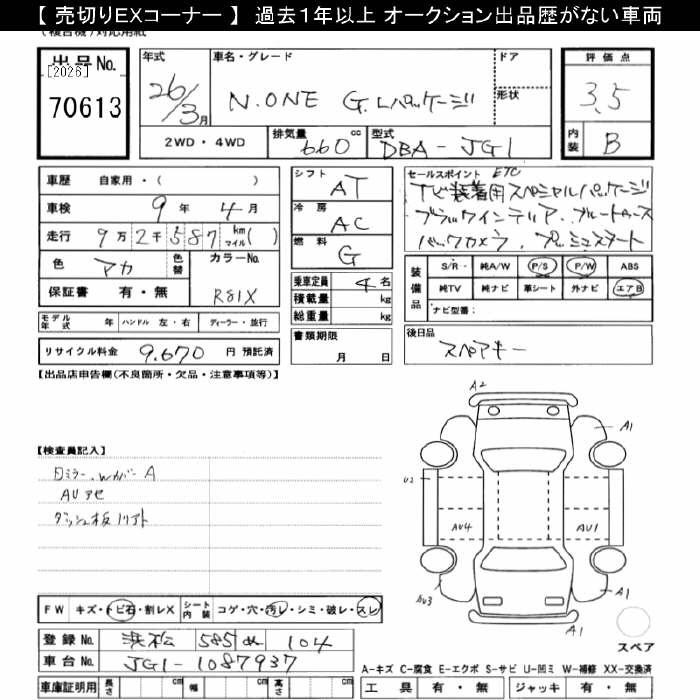 【 売切りEXコーナー 】 過去１年以上 オークション出品歴がない車両
出品No.
[2026]
70613
年式
26/3月
車名・グレード
N.ONE G.Lパッケージ
ドア
形状
評価点
3.5
内装
B
2WD・4WD
排気量
660
cc
型式
DBA-JG1
車歴
自家用・( )
車検
9年4月
走行
9万2千587
km
マイル( )
色
アカ
色替
カラーNo.
R81X
保証書
有・無
シフト
AT
冷房
AC
燃料
G
乗車定員
4名
積載量
kg
総重量
kg
書類期限
月 日
セールスポイント
ETC
ナビ装着用スペシャルパッケージ
ブラックインテリア.ブルートゥース
バックカメラ.プッシュスタート
装備品
S/R・純A/W P/S P/W ABS
純TV 純ナビ 革シート 外ナビ エアB
ナビ型番:
モデル年式
年
ハンドル 左・右
ディーラー・並行
リサイクル料金
9.670
円 預託済
後日品
スペアキー
【出品店申告欄(不良箇所・欠品・注意事項等)】
【検査員記入】
AUアセ
A2
A1
U2
AU4
AU1
AU3
A1
A1
スペア
FW
キズ・トビ石・割レX
シート内装
コゲ・穴・汚レ・シミ・破レ・スレ
登録No.
浜松 585 ぬ 104
車台No.
JG1-1087937
車庫証明用
長さ
cm
幅
cm
高さ
cm
A-キズ C-腐食 E-エクボ S-サビ U-凹ミ W-補修 XX-交換済
工具
有・無
ジャッキ
有・無